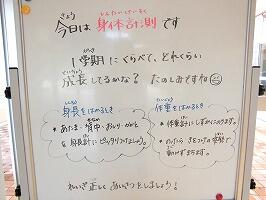 今日は 身体計測 です
1学期に くらべて、どれくらい
成長してるかな？ たのしみですね☺
身長をはかるとき
・あたま・背中・おしり・かかと
を身長計にピッタリつけましょう。
体重をはかるとき
・体重計にしずかにのります。
・のったら きをつけの姿勢で
動かずまちます。
れいぎ正しく あいさつをしましょう！